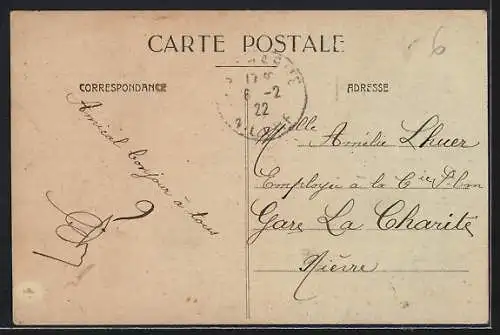 6
CARTE POSTALE
CORRESPONDANCE
ADRESSE
17
6 -2
22
Amical bonjour à tous
Mlle Amélie Lhuer
Employée à la Cie
Gare La Charité
Nièvre